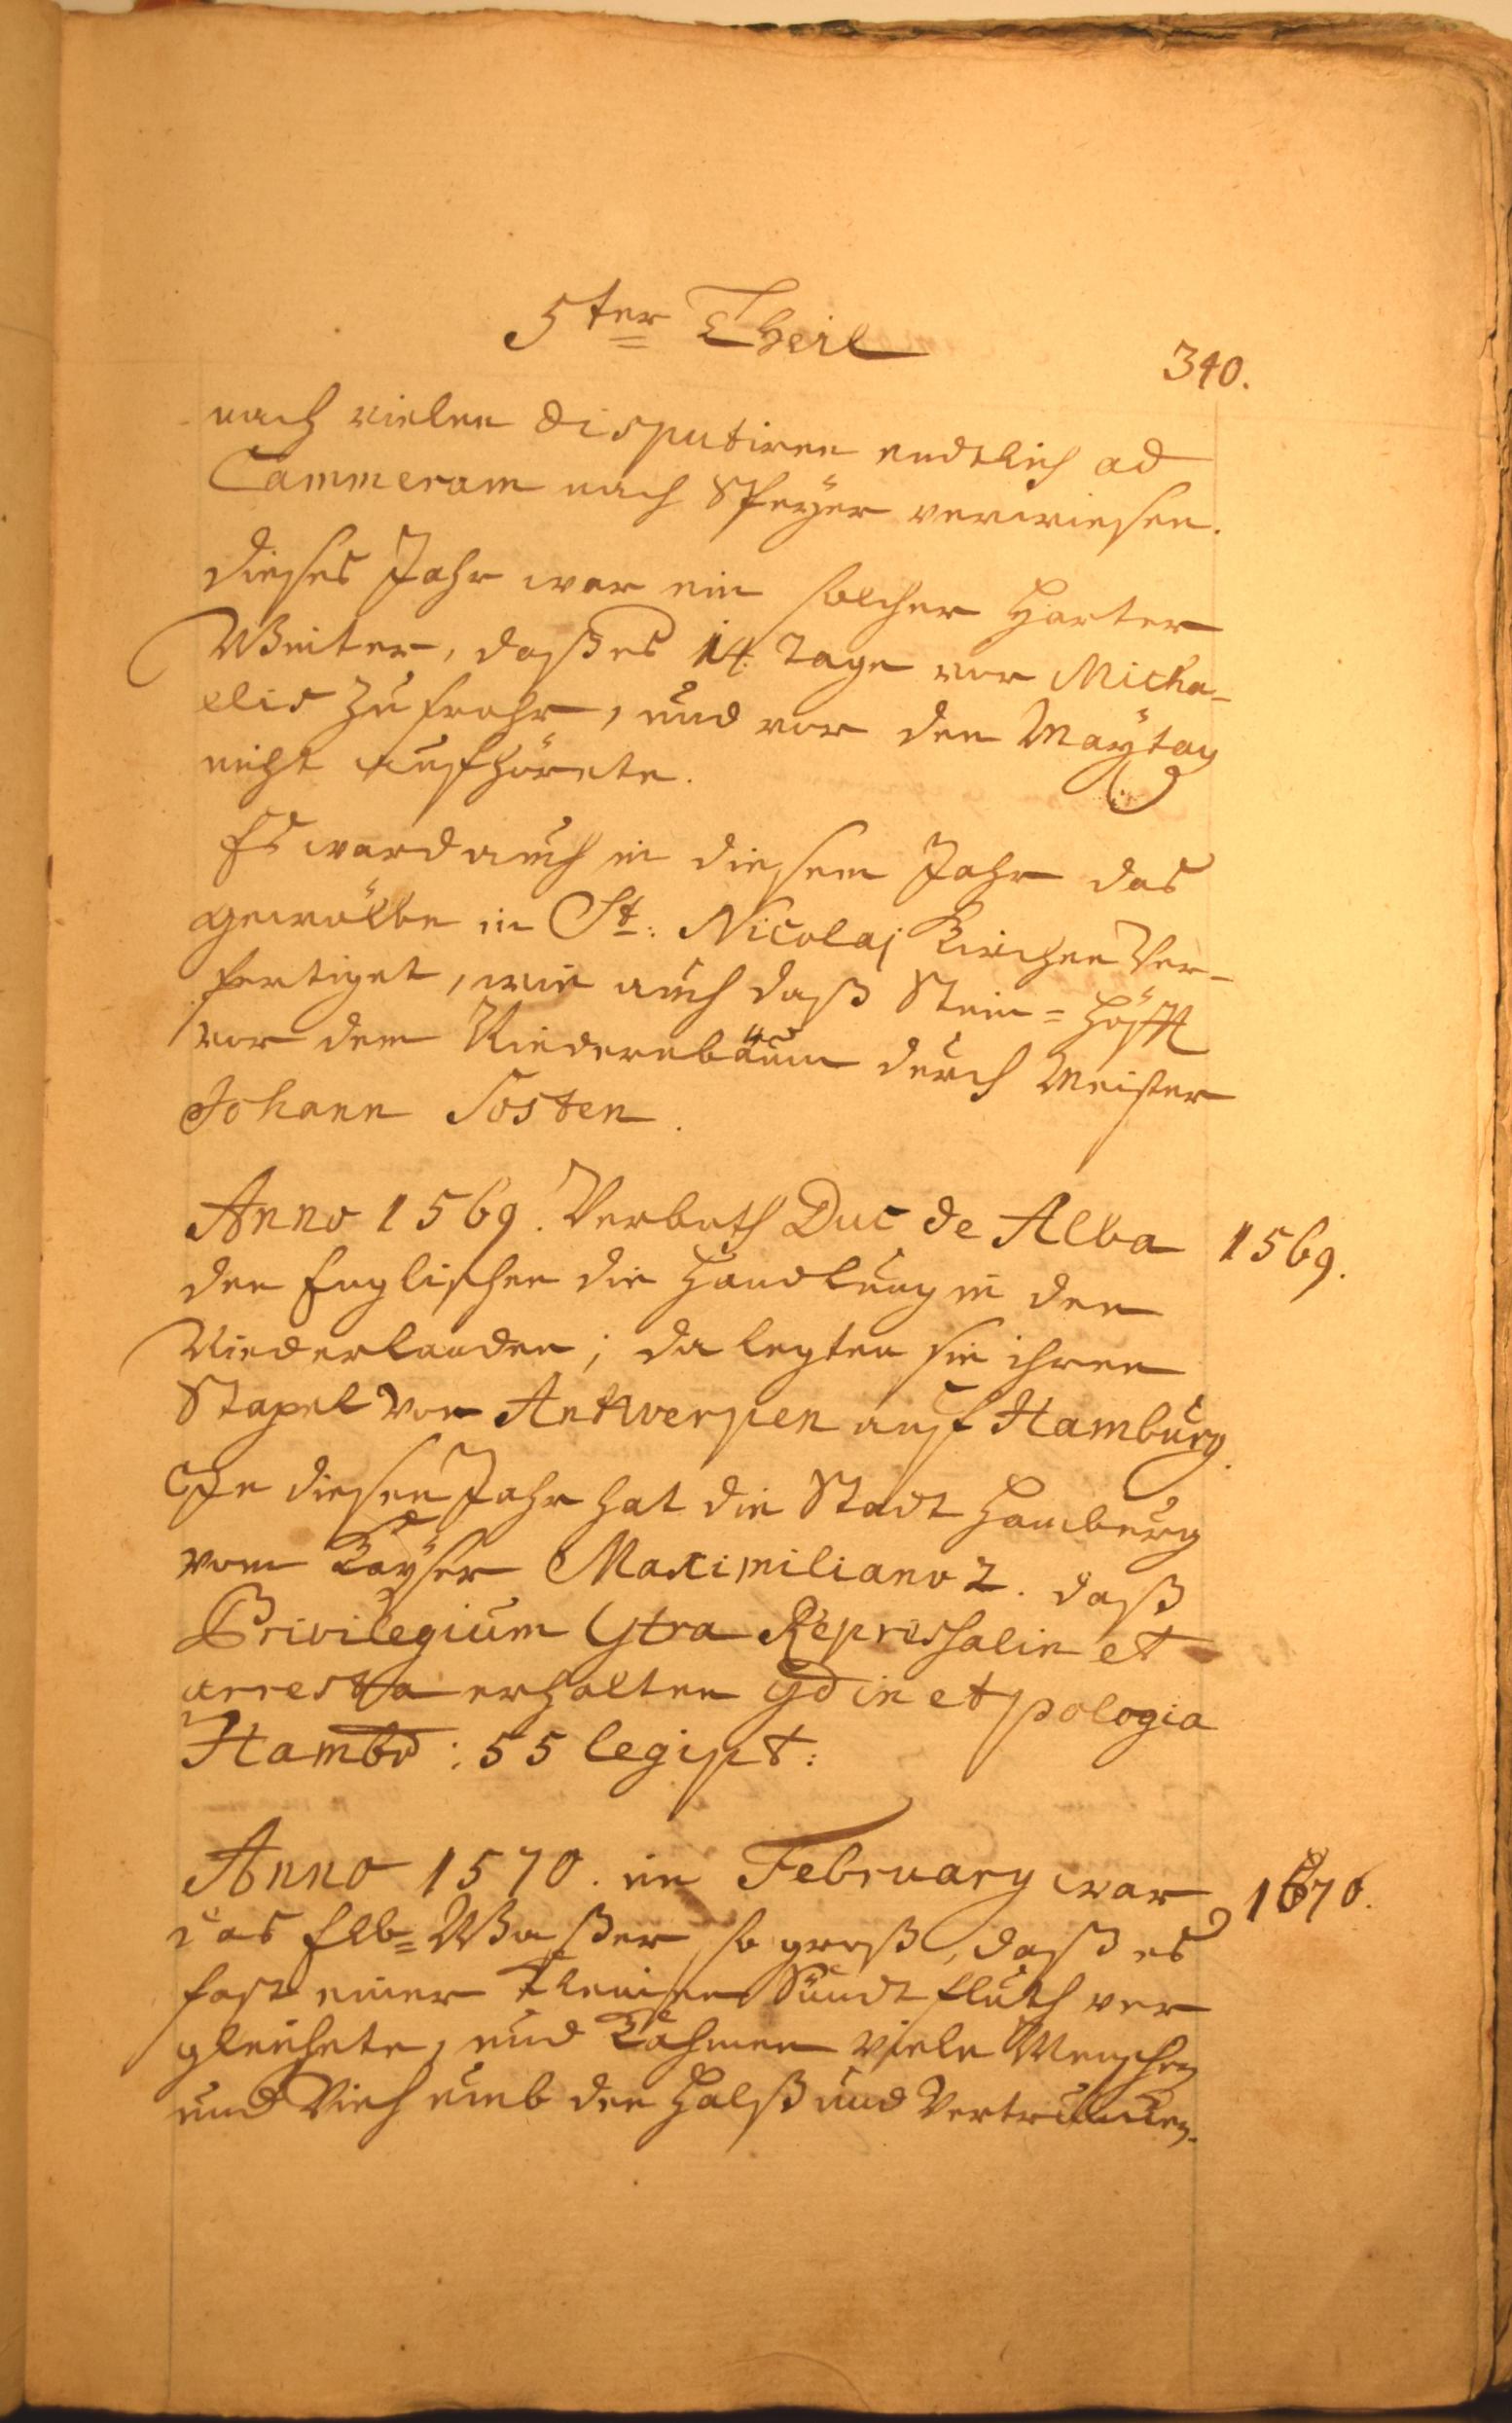 5ter Theil
340.
nach vielen disputiren endtlich ad
Cammeram nach Speÿer verwiesen.
dieses Jahr war ein solcher harter
Winter, daß es 14. Tage vor Micha-
elis zu frohr, und vor den Maÿtag
nicht aufhörete.
Es ward auch in diesem Jahr das
gewölbe in St: Nicolaj Kirchen Ver-
fertiget, wie auch daß Stein=Höfft
vor dem Niedernbäum durch Meister
Johann Tosten.
Anno 1569. Verboth Duc de Alba
1569.
den Englischen die Handlung in den
Niederlanden; da legten sie ihren
Stapel von Antwerpen auf Hamburg.
In diesen Jahr hat die Stadt Hamburg
vom Kaÿser Maximiliano 2. daß
Privilegium Ctra Repressalia et
arresta erhalten qd in et pologia
Hamb: 55 legipt:
Anno 1570. im February war
1570.
das Elb=Waßer so groß, daß es
fast einer kleinen Sündtfluth ver
gleichete, und Kahmen viele Menschen
und Vieh umb den Halß und Vertruncken.